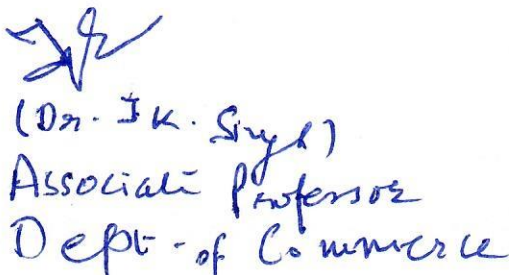 (Dr. I K. Singh)
Associate Professor
Dept. of Commerce